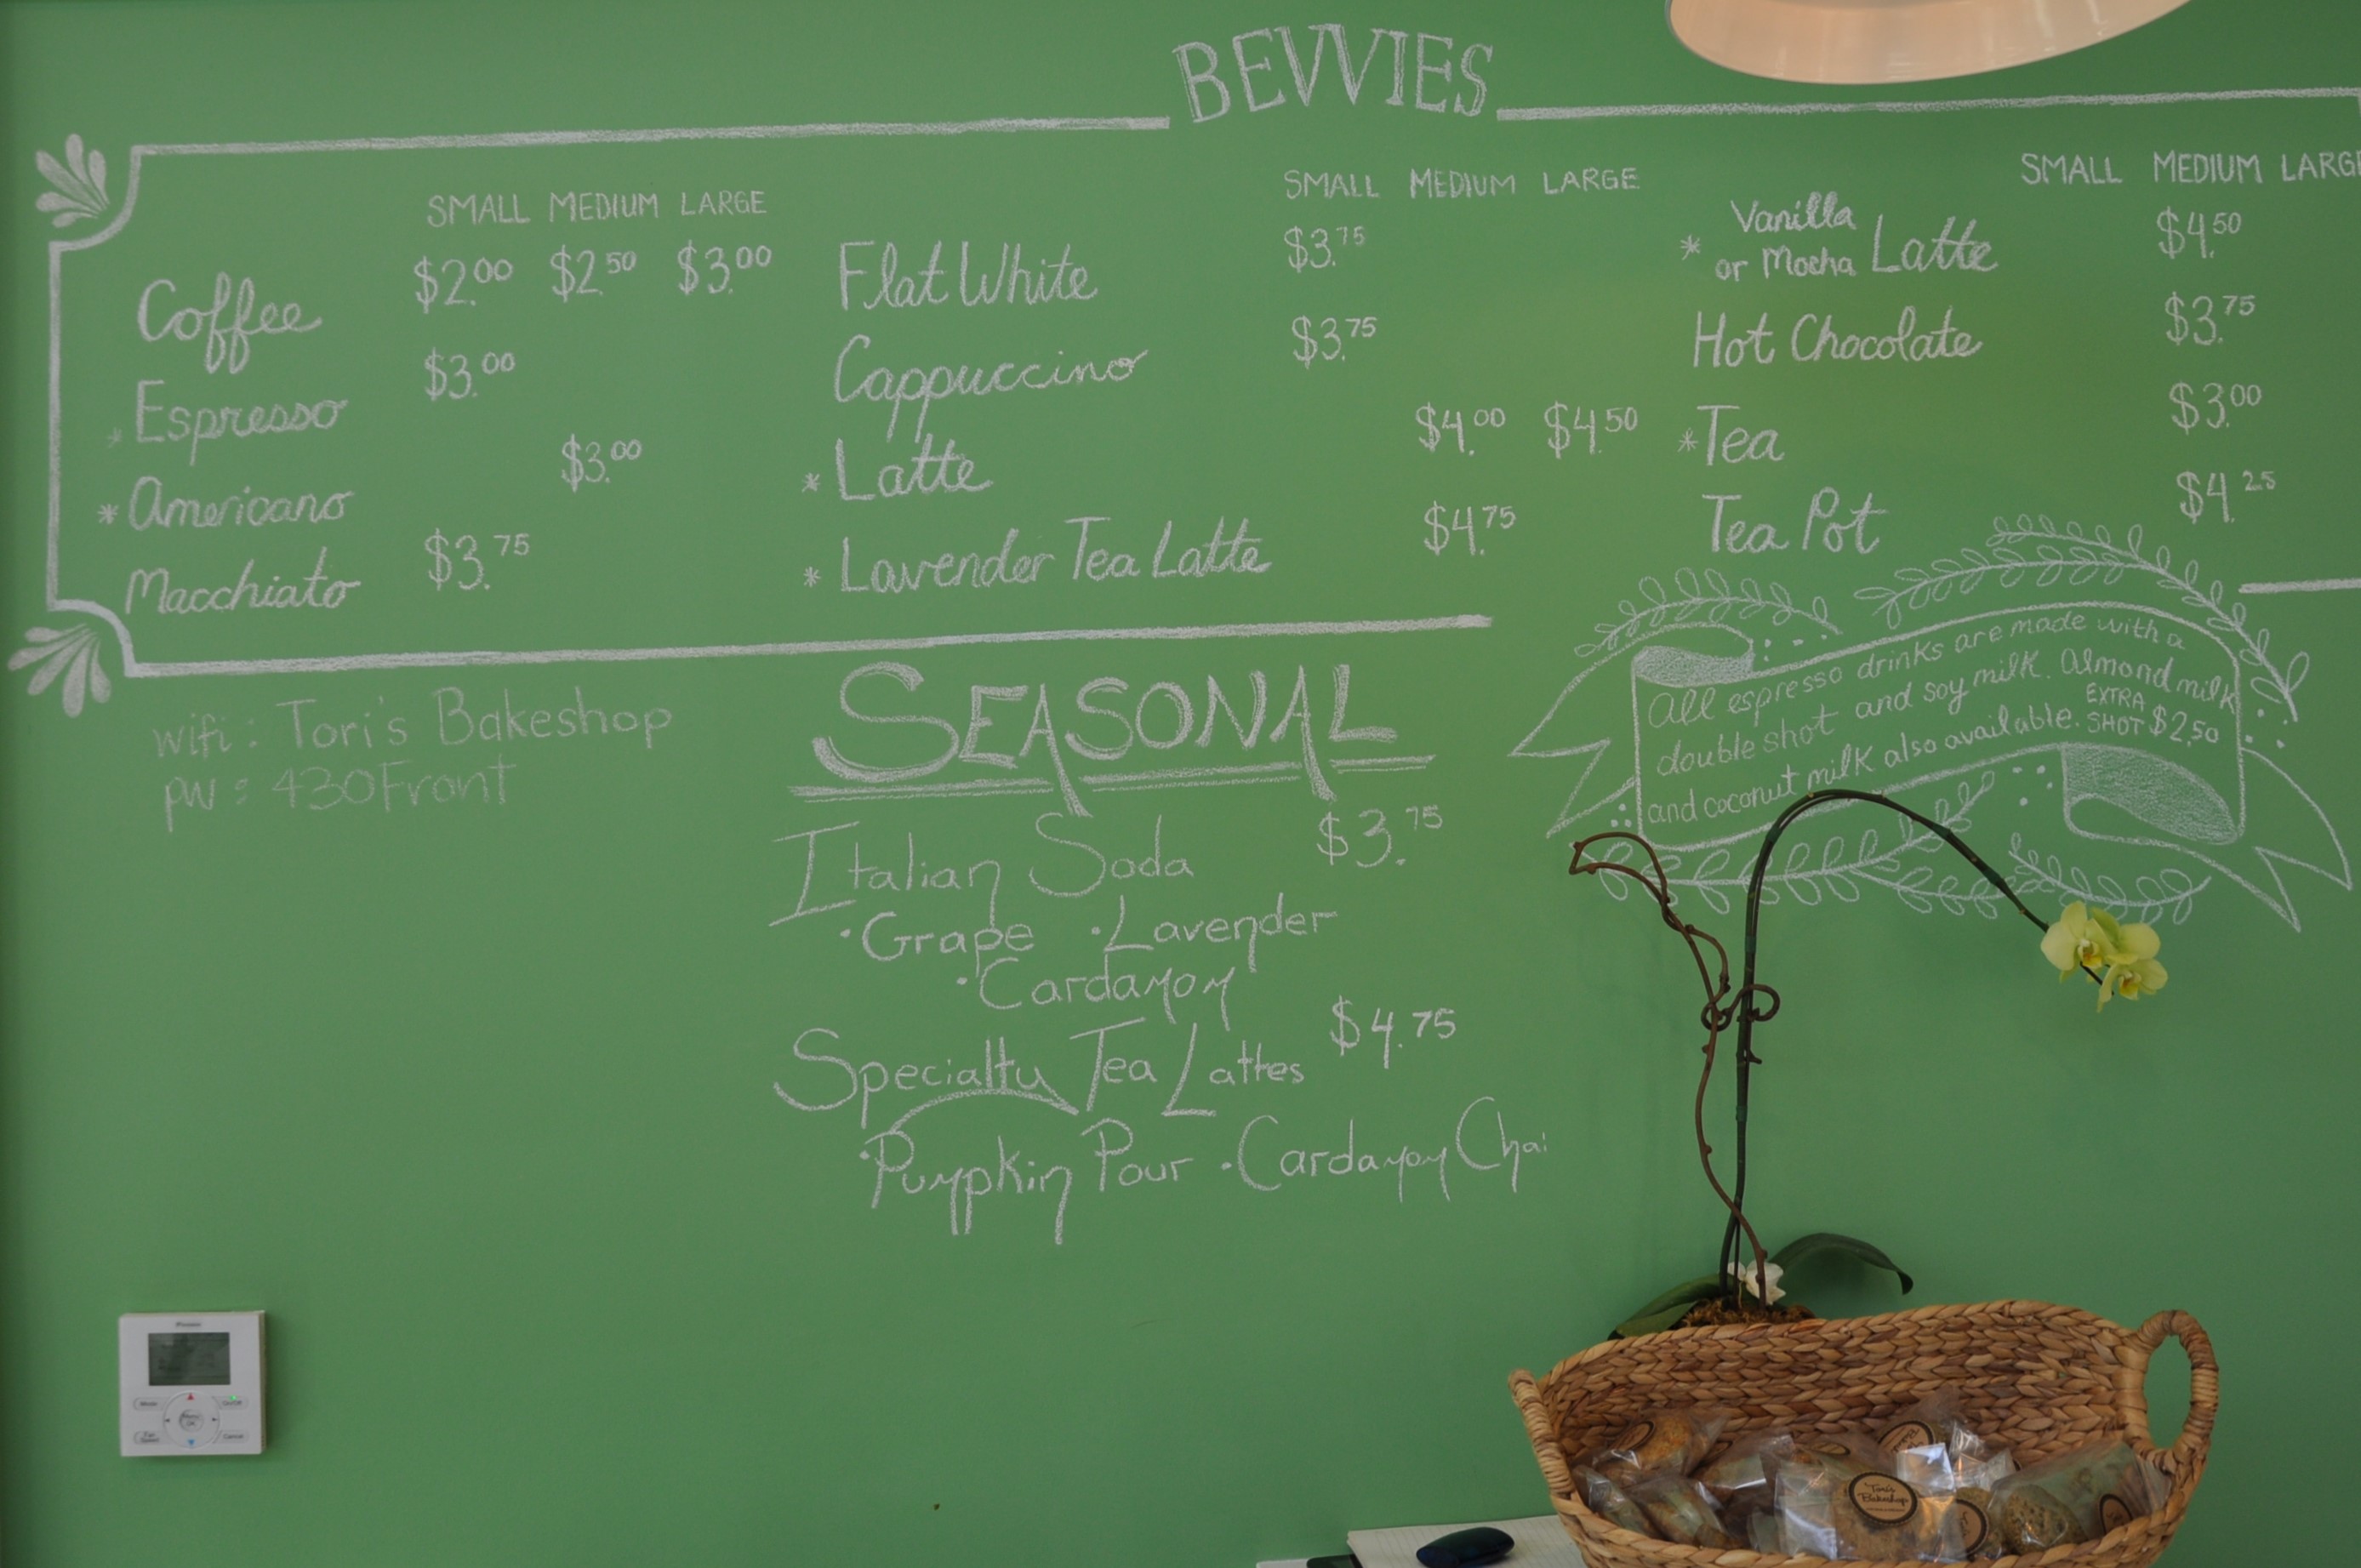 BEVVIES
SMALL MEDIUM LARGE
Coffee $2.00 $2.50 $3.00
* Espresso $3.00
* Americano $3.00
Macchiato $3.75
SMALL MEDIUM LARGE
Flat White $3.75
Cappuccino $3.75
* Latte $4.00 $4.50
* Lavender Tea Latte $4.75
SMALL MEDIUM LARGE
Vanilla
* or Mocha Latte $4.50
Hot Chocolate $3.75
* Tea $3.00
Tea Pot $4.25
All espresso drinks are made with a
double shot and soy milk. Almond milk
and coconut milk also available. EXTRA
SHOT $2.50
wifi: Tori's Bakeshop
pw: 430Front
SEASONAL
Italian Soda $3.75
·Grape ·Lavender
·Cardamom
Specialty Tea Lattes $4.75
·Pumpkin Pour ·Cardamom Chai
Mode
On/Off
Menu
OK
Fan
Speed
Cancel
Tori's
Bakeshop